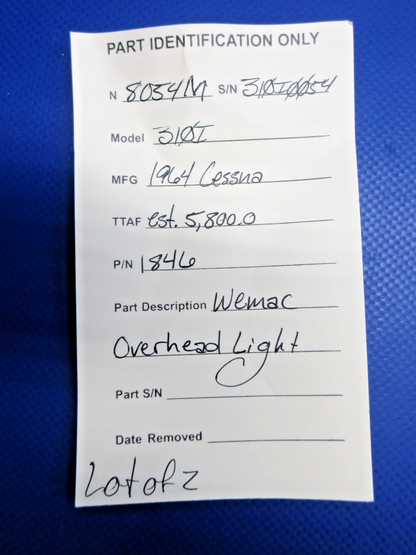 PART IDENTIFICATION ONLY
N 8054M S/N 310I0054
Model 310I
MFG 1964 Cessna
TTAF est. 5,800.0
P/N 1846
Part Description Wemac
Overhead Light
Part S/N
Date Removed
Lot of 2